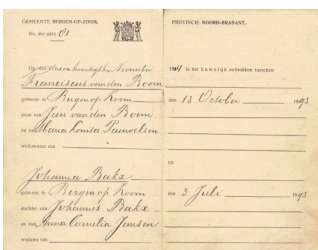 GEMEENTE BERGEN-OP-ZOOM.
PROVINCIE NOORD-BRABANT.
No. der akte 61
Op November 19 is het huwelijk voltrokken tusschen
Franciscus van den Boom
geboren te Bergen op Zoom den 13 October 1893
zoon van Jan van den Boom
en van Maria Louisa Pauwelsen
weduwnaar van
en
Johanna Bakx
geboren te Bergen op Zoom den 3 Juli 1893
dochter van Johannes Bakx
en van Anna Cornelia Jansen
weduwe van